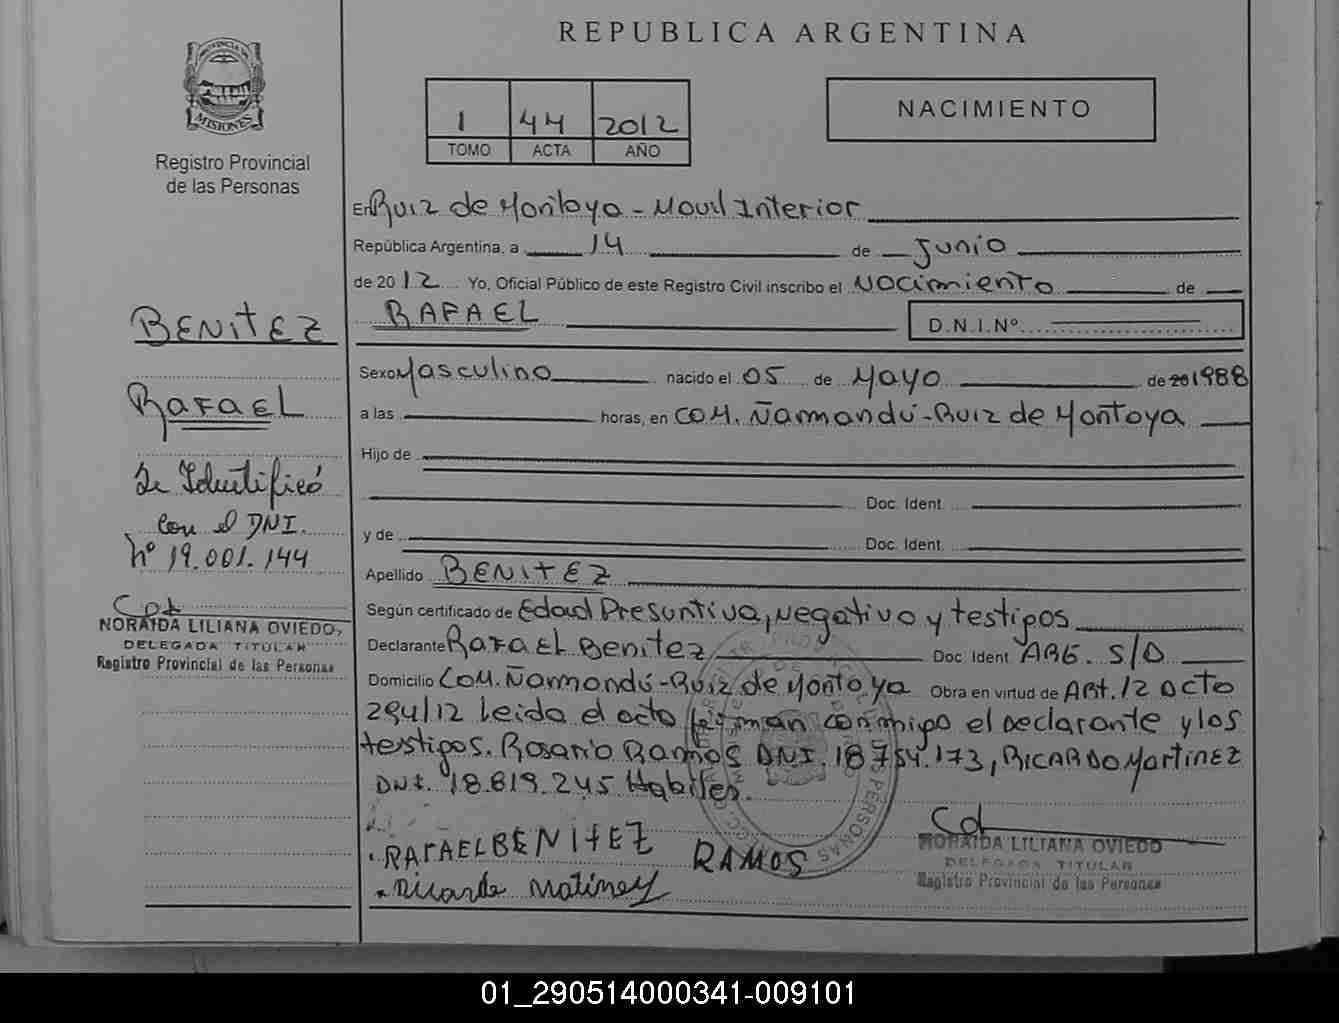 REPUBLICA ARGENTINA
PROVINCIA DE
MISIONES
Registro Provincial
de las Personas
1 44 2012
TOMO ACTA AÑO
NACIMIENTO
En Ruiz de Montoya - Movil Interior
República Argentina, a 14 de Junio
de 2012 Yo, Oficial Público de este Registro Civil inscribo el Nacimiento de
RAFAEL D.N.I.Nº
Sexo Masculino nacido el 05 de Mayo de 20 1988
a las horas, en COM. Ñamandú - Ruiz de Montoya
Hijo de
Doc. Ident.
y de Doc. Ident.
Apellido BENITEZ
Según certificado de Edad Presuntiva, negativo y testigos
Declarante Rafael Benitez Doc Ident ARG. S/D
Domicilio COM. Ñamandú - Ruiz de Montoya Obra en virtud de Art. 12 Dcto
294/12 leida el acta firman conmigo el declarante y los
testigos. Rosario Ramos DNI. 18.754.173, RICARDO Martinez
DNI. 18.819.245 Habiles.
RAFAEL BENITEZ RAMOS
NORAIDA LILIANA OVIEDO
DELEGADA TITULAR
Registro Provincial de las Personas
BENITEZ
RAFAEL
Se Identificó
con el DNI.
Nº 19.001.144
NORAIDA LILIANA OVIEDO
DELEGADA TITULAR
Registro Provincial de las Personas
01_290514000341-009101